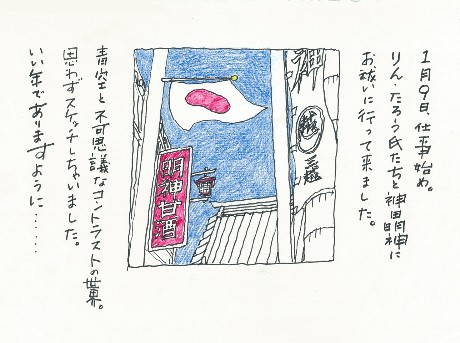 1月9日、仕事始め。
りん・たろう氏たちと神田明神に
お祓いに行って来ました。
越
三越
明神甘酒
青空と不可思議なコントラストの世界。
思わずスケッチしちゃいました。
いい年でありますように……